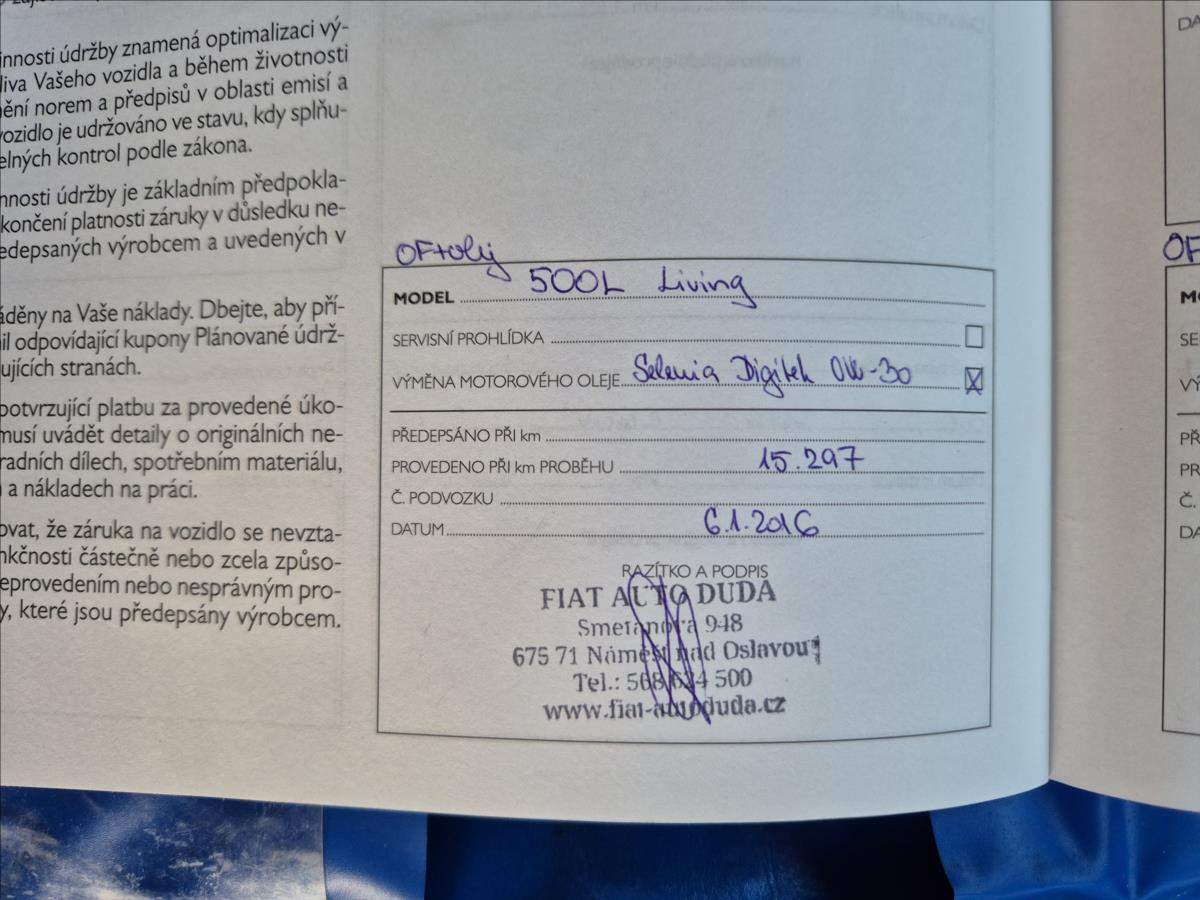 innosti údržby znamená optimalizaci vý-
liva Vašeho vozidla a během životnosti
nění norem a předpisů v oblasti emisí a
vozidlo je udržováno ve stavu, kdy splňu-
elných kontrol podle zákona.
nnosti údržby je základním předpokla-
končení platnosti záruky v důsledku ne-
edepsaných výrobcem a uvedených v
áděny na Vaše náklady. Dbejte, aby pří-
il odpovídající kupony Plánované údrž-
ujících stranách.
potvrzující platbu za provedené úko-
musí uvádět detaily o originálních ne-
radních dílech, spotřebním materiálu,
a nákladech na práci.
ovat, že záruka na vozidlo se nevzta-
nkčnosti částečně nebo zcela způso-
eprovedením nebo nesprávným pro-
y, které jsou předepsány výrobcem.
OF+olej
MODEL 500L Living
SERVISNÍ PROHLÍDKA
VÝMĚNA MOTOROVÉHO OLEJE Selenia Digitek 0W-30
PŘEDEPSÁNO PŘI km
PROVEDENO PŘI km PROBĚHU 15.297
Č. PODVOZKU
DATUM 6.1.2016
RAZÍTKO A PODPIS
FIAT AUTO DUDA
Smetanova 948
675 71 Náměšť nad Oslavou
Tel.: 568 624 500
www.fiat-autoduda.cz
DA
OF
MO
SE
VÝ
PŘ
PR
Č.
DA